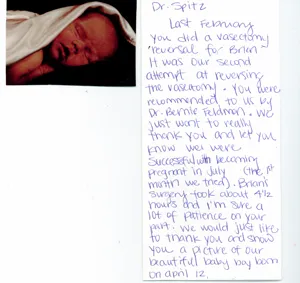 Dr. Spitz
Last February
you did a vasectomy
reversal for Brian ~
It was our second
attempt at reversing
the vasectomy. You were
recommended to us by
Dr. Bernie Feldman. We
just want to really
thank you and let you
know we were
successful with becoming
pregnant in July (the 1st
month we tried). Brian's
surgery took about 4 1/2
hours and I'm sure a
lot of patience on your
part. We would just like
to thank you and show
you a picture of our
beautiful baby boy born
on april 12,